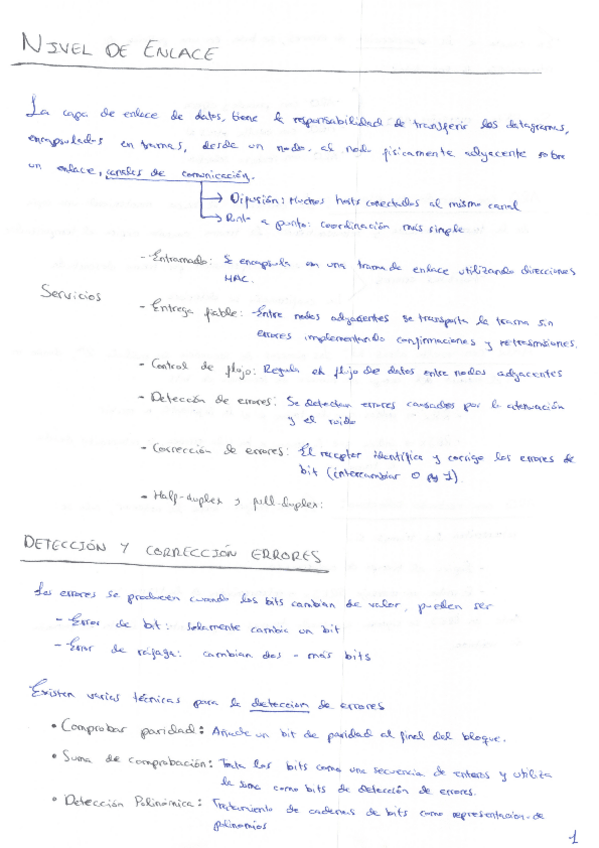 NIVEL DE ENLACE
La capa de enlace de datos, tiene la responsabilidad de transferir los datagramas,
encapsulados en tramas, desde un nodo al nodo físicamente adyacente sobre
un enlace, canales de comunicación.
Difusión: Muchos hosts conectados al mismo canal
Punto a punto: coordinación más simple
Servicios
- Entramado: Se encapsula en una trama de enlace utilizando direcciones
MAC.
- Entrega fiable: Entre nodos adyacentes se transporta la trama sin
errores implementando confirmaciones y retransmisiones.
- Control de flujo: Regula el flujo de datos entre nodos adyacentes
- Detección de errores: Se detectan errores causados por la atenuación
y el ruido
- Corrección de errores: El receptor identifica y corrige los errores de
bit (intercambiar 0 1)
- Half-duplex y full-duplex:
DETECCIÓN Y CORRECCIÓN ERRORES
Los errores se producen cuando los bits cambian de valor, pueden ser
- Error de bit: solamente cambia un bit
- Error de ráfaga: cambian dos o más bits
Existen varias técnicas para la deteccion de errores
• Comprobar paridad: Añade un bit de paridad al final del bloque.
• Suma de comprobación: Trata los bits como una secuencia de enteros y utiliza
la suma como bits de detección de errores.
• Detección Polinómica: Tratamiento de cadenas de bits como representacion de
polinomios
1